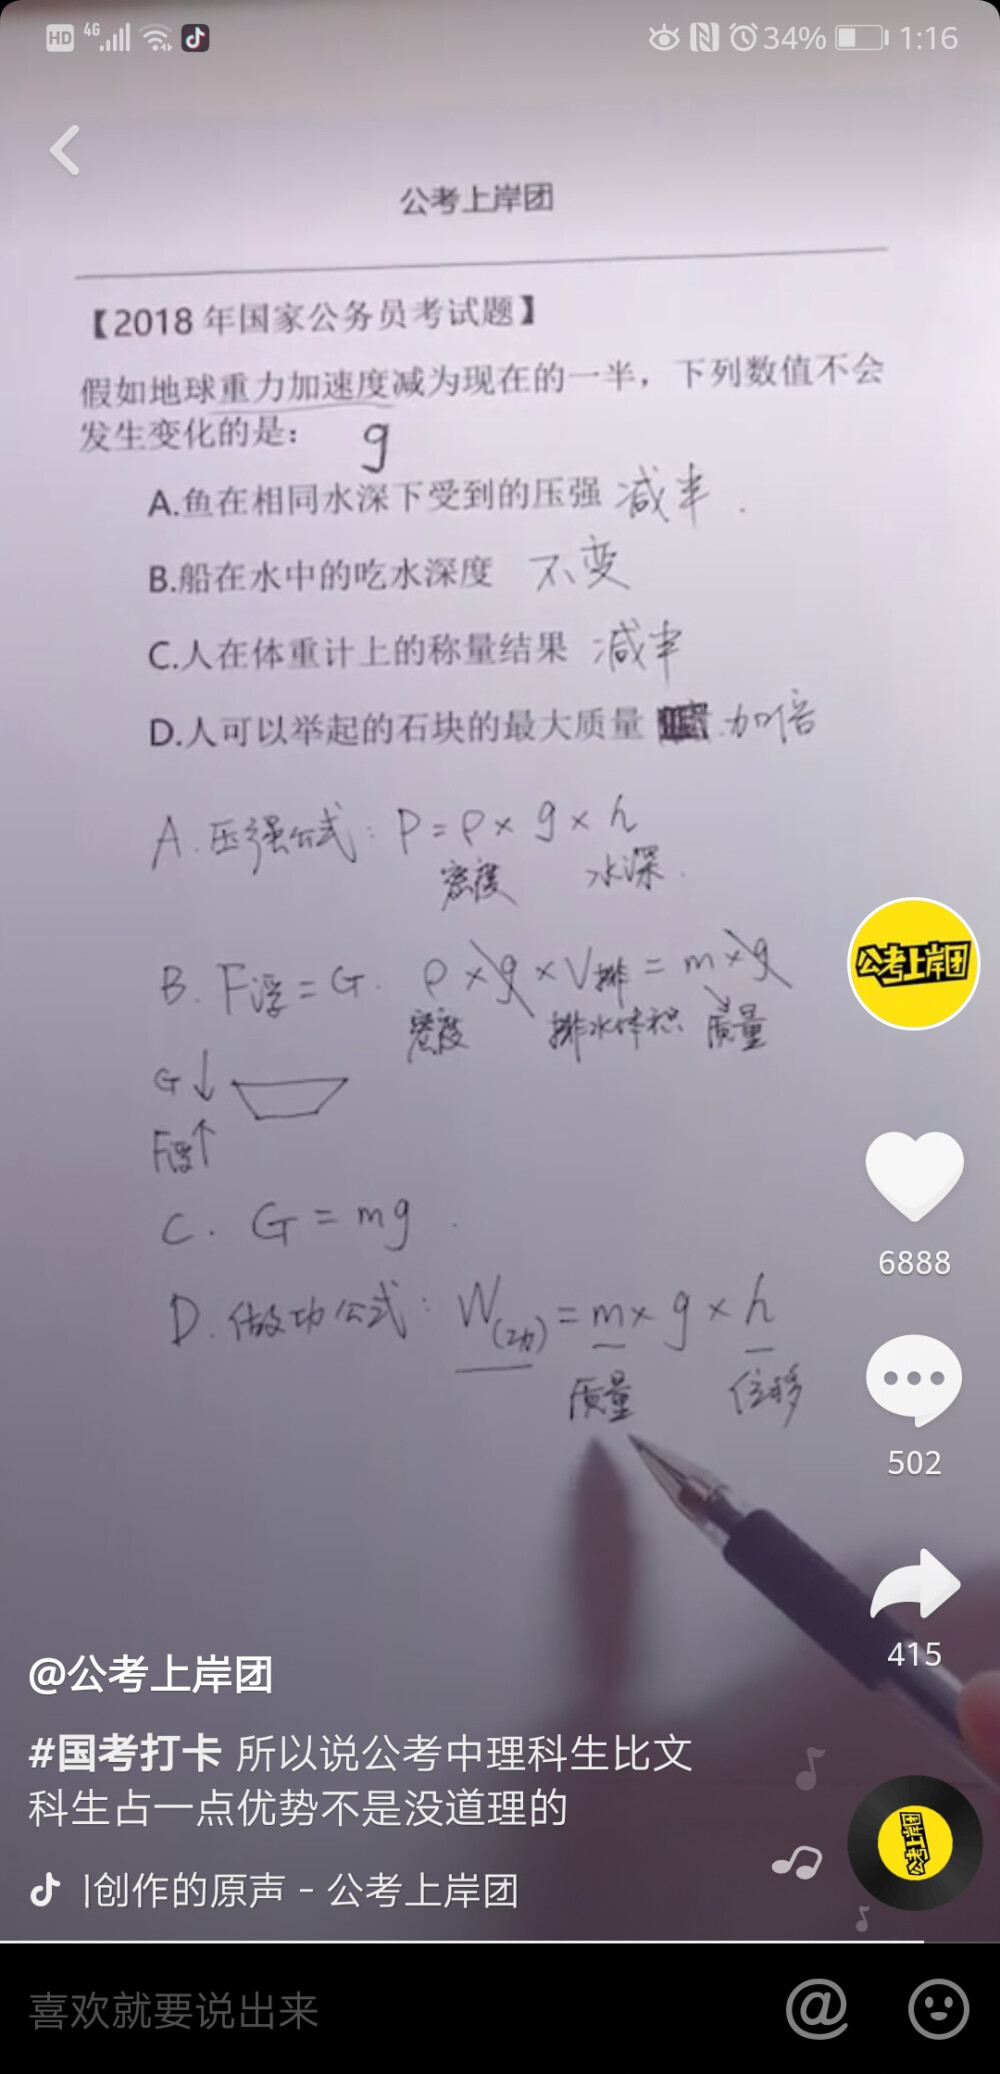 HD 4G 34% 1:16
公考上岸团
【2018年国家公务员考试题】
假如地球重力加速度减为现在的一半，下列数值不会
发生变化的是：
g
A.鱼在相同水深下受到的压强 减半.
B.船在水中的吃水深度 不变
C.人在体重计上的称量结果 减半
D.人可以举起的石块的最大质量 加倍
A.压强公式: P=ρ×g×h
密度 水深.
B. F浮=G. ρ×g×V排=m×g
密度 排水体积 质量
G↓
F浮↑
C. G=mg.
D.做功公式: W(功)=m×g×h
质量 位移
公考上岸团
6888
502
415
@公考上岸团
#国考打卡 所以说公考中理科生比文
科生占一点优势不是没道理的
创作的原声 - 公考上岸团
公考上岸团
喜欢就要说出来